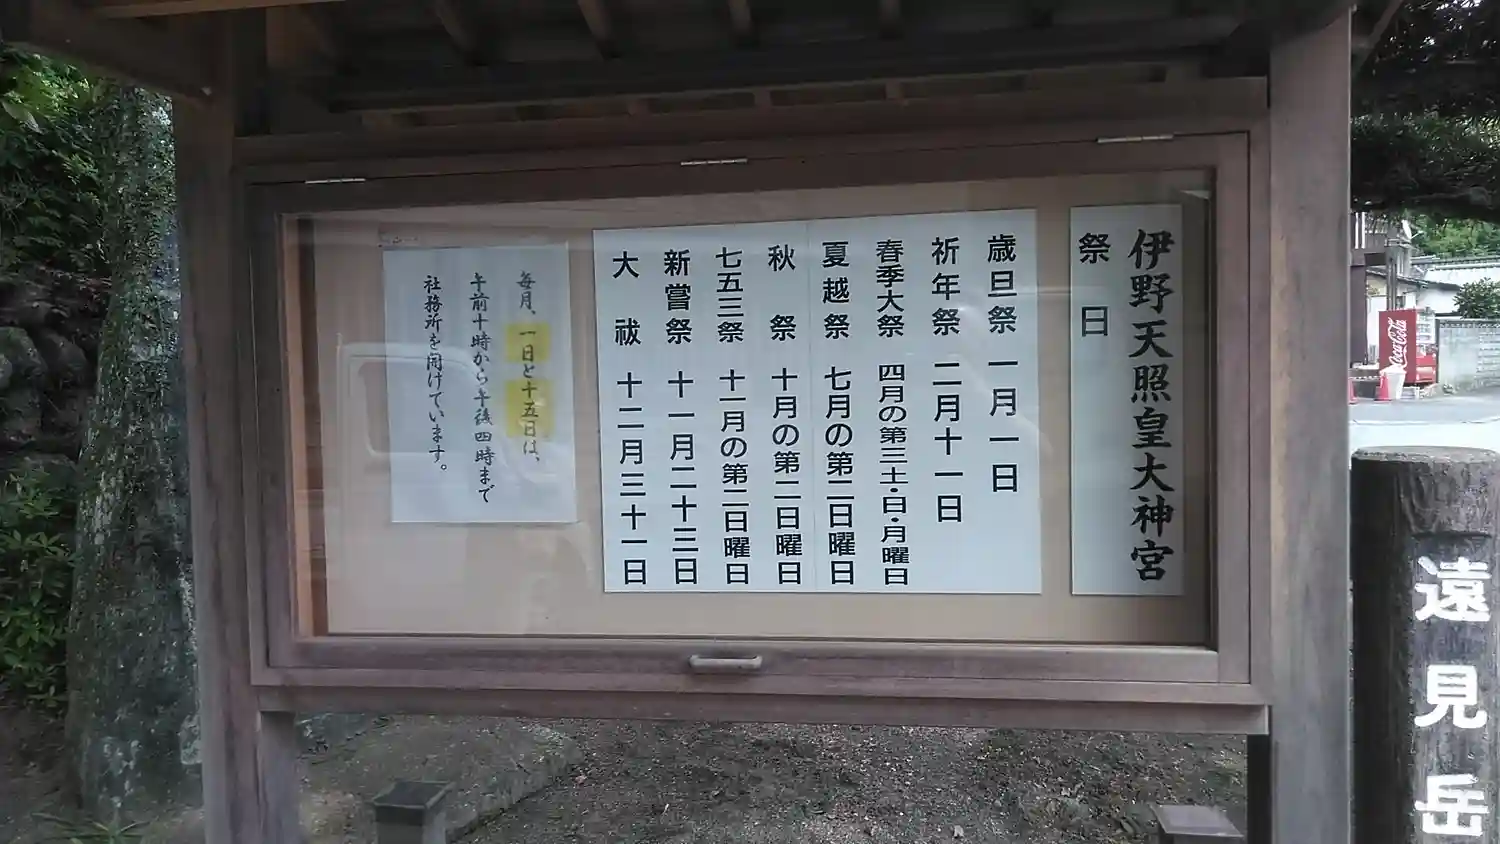 伊野天照皇大神宮
祭日
歳旦祭 一月一日
祈年祭 二月十一日
春季大祭 四月の第三土・日・月曜日
夏越祭 七月の第二日曜日
秋祭 十月の第二日曜日
七五三祭 十一月の第二日曜日
新嘗祭 十一月二十三日
大祓 十二月三十一日
毎月、一日と十五日は、
午前十時から午後四時まで
社務所を開けています。
遠見岳
Coca-Cola